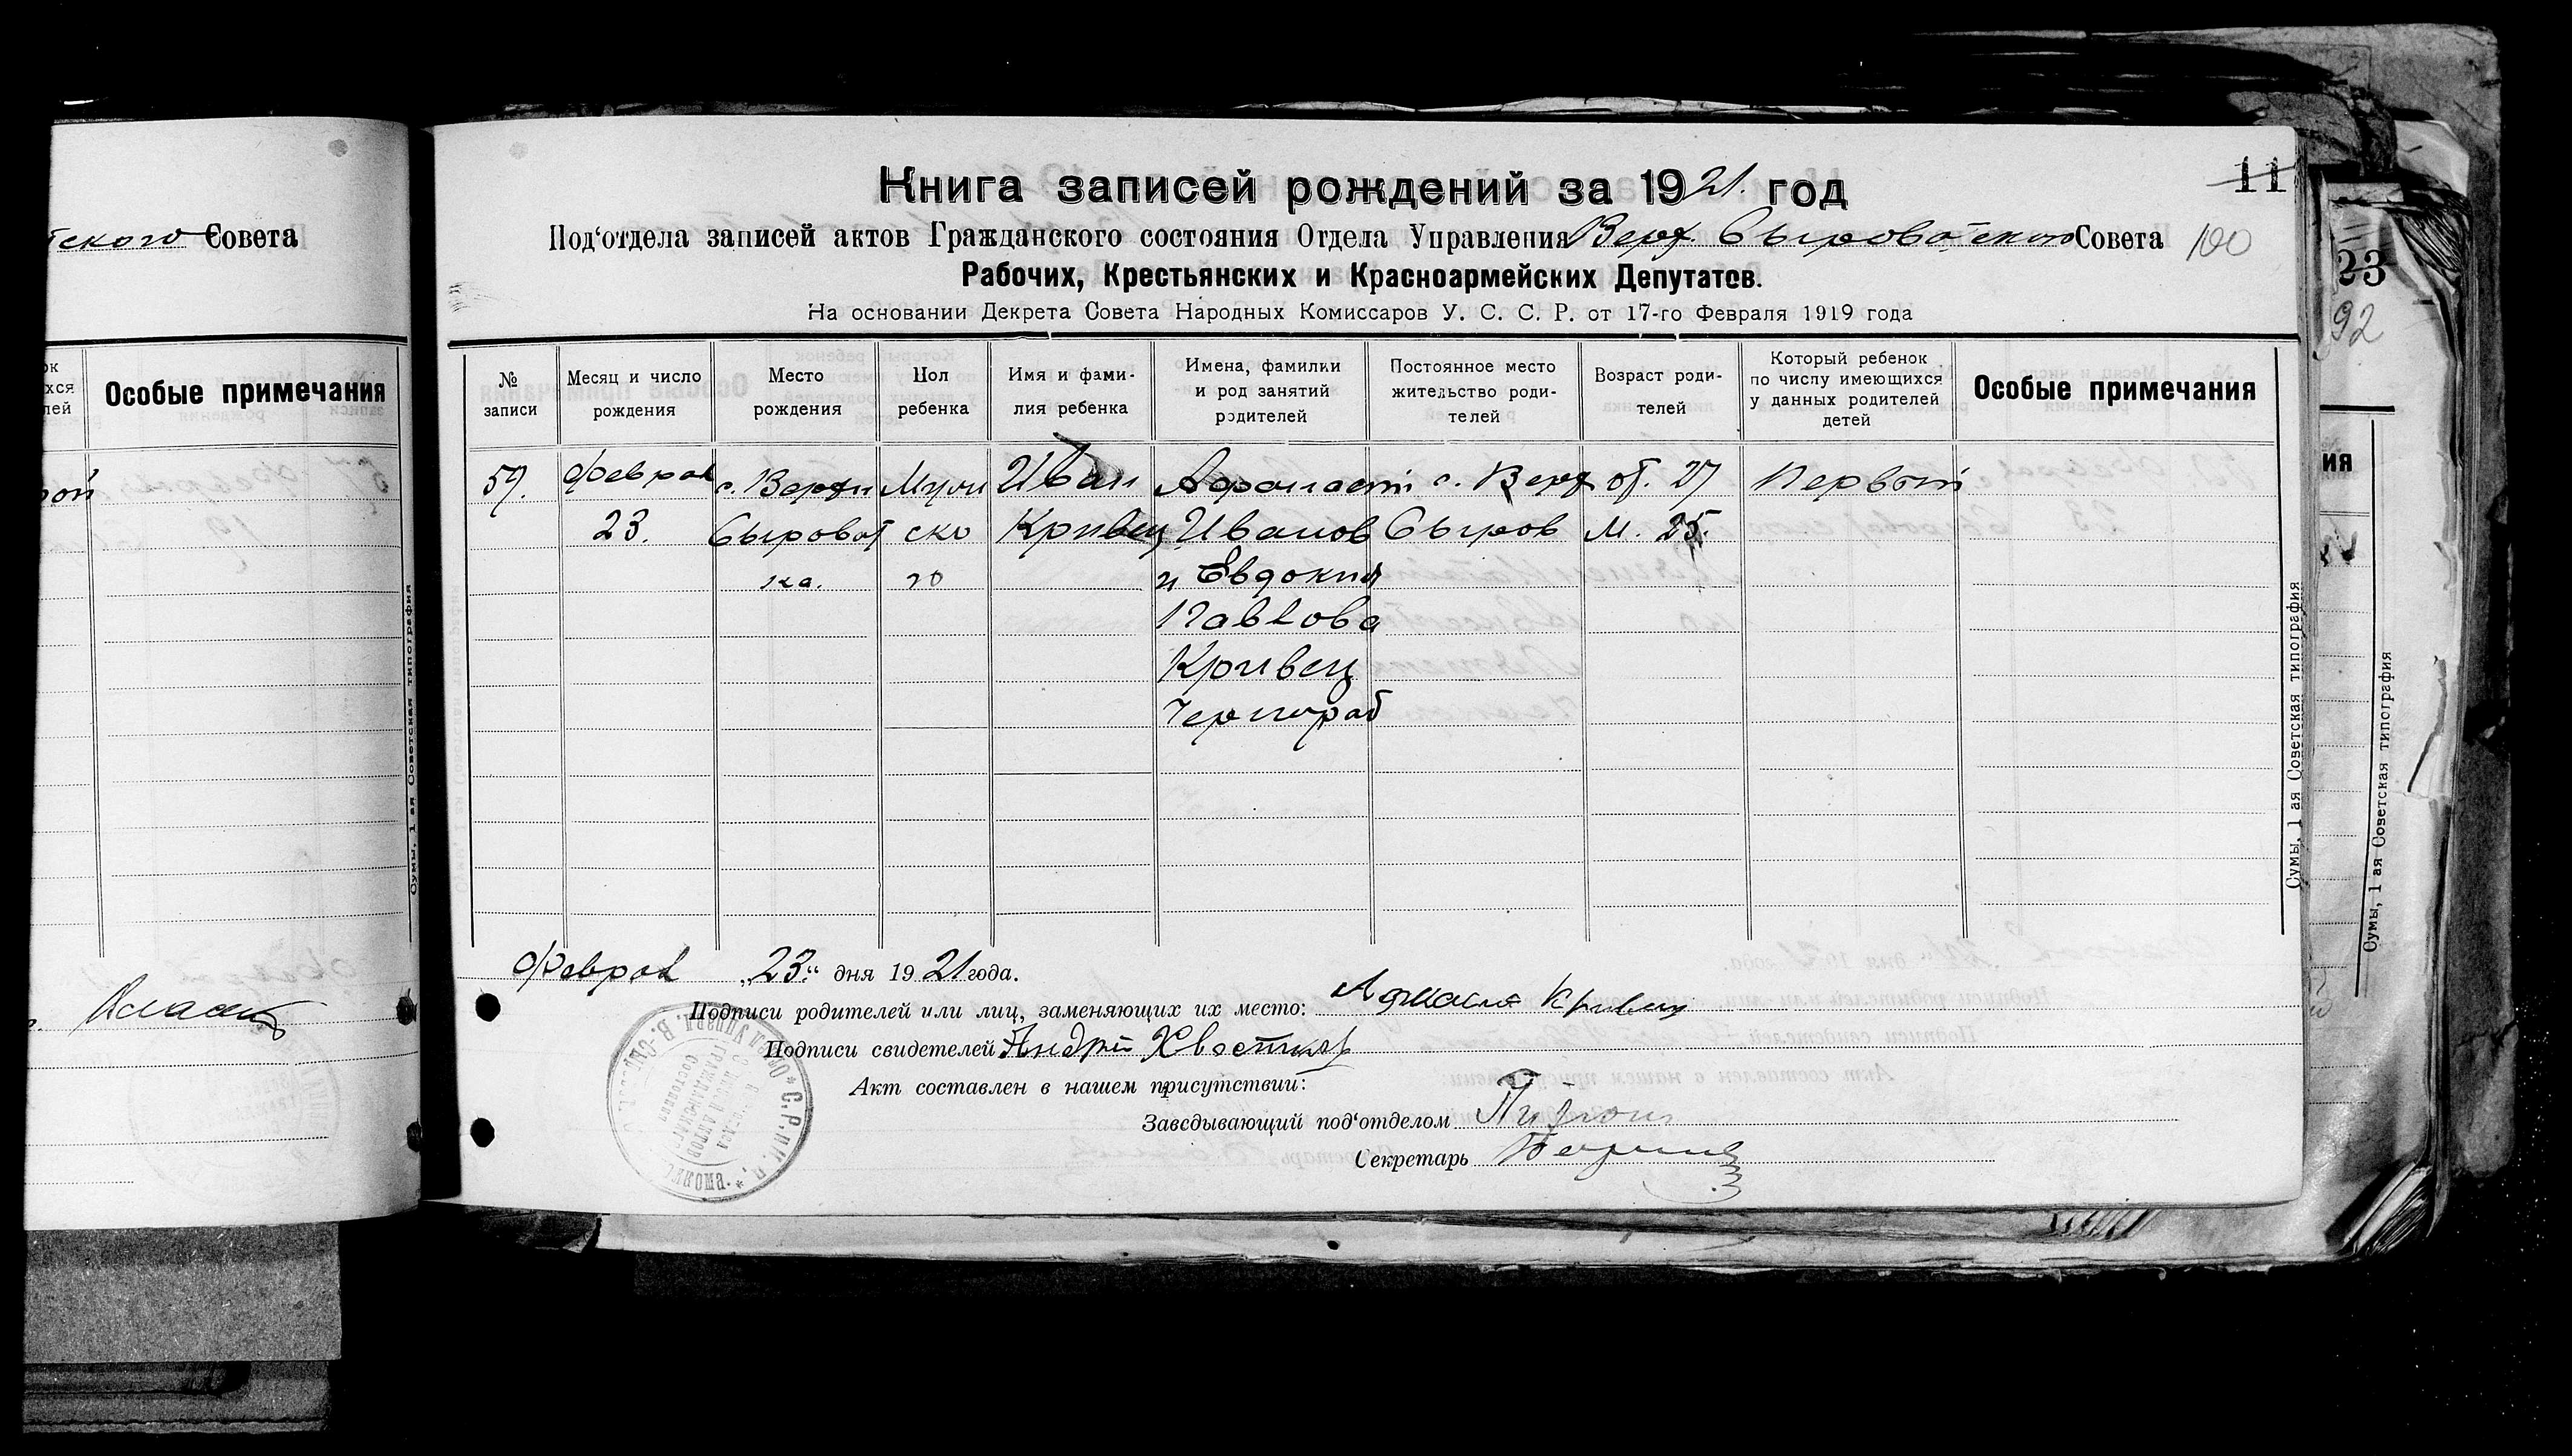 ского Совета
Особые примечания
Книга записей рождений за 1921. год
11
Под‘отдела записей актов Гражданского состояния Отдела Управления Верх. Сыроватского Совета
100
Рабочих, Крестьянских и Красноармейских Депутатов.
На основании Декрета Совета Народных Комиссаров У. С. С. Р. от 17-го Февраля 1919 года
23
92
№ записи
Месяц и число рождения
Место рождения
Пол ребенка
Имя и фамилия ребенка
Имена, фамилии и род занятий родителей
Постоянное место жительство родителей
Возраст родителей
Который ребенок по числу имеющихся у данных родителей детей
Особые примечания
59. Феврал с. Верхн Мужи Иван Афонасий с. Верх от. 27 Первый
23. Сыроват ско Кривец Иванов Сыров М. 25.
ка. го и Евдокия
Павлова
Кривец
Чернораб
Феврал „23“ дня 1921 года.
Подписи родителей или лиц, заменяющих их место: Афанасий Кривец
Подписи свидетелей Андрей
Акт составлен в нашем присутствии:
Заведывающий под‘отделом
Секретарь
Сумы, 1 ая Советская типография
Сумы, 1 ая Советская типография
Сумы, 1 ая Советская типография